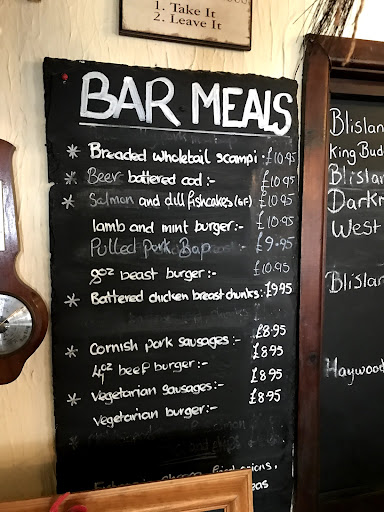 1. Take It
2. Leave It
BAR MEALS
* Breaded wholetail scampi :- £10.95
* Beer battered cod :- £10.95
* Salmon and dill fishcakes (GF) £10.95
lamb and mint burger :- £10.95
Pulled Pork Bap £9.95
8oz beast burger :- £10.95
* Battered chicken breast chunks :- £9.95
* Cornish pork sausages :- £8.95
4oz beef burger :- £8.95
* Vegetarian sausages :- £8.95
Vegetarian burger :- £8.95
and
onions,
peas
Blislan
King Bud
Blislan
Darkn
West
Blislan
Haywood